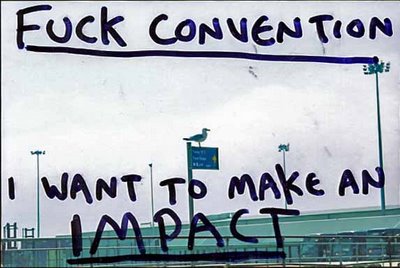 FUCK CONVENTION
I WANT TO MAKE AN
IMPACT